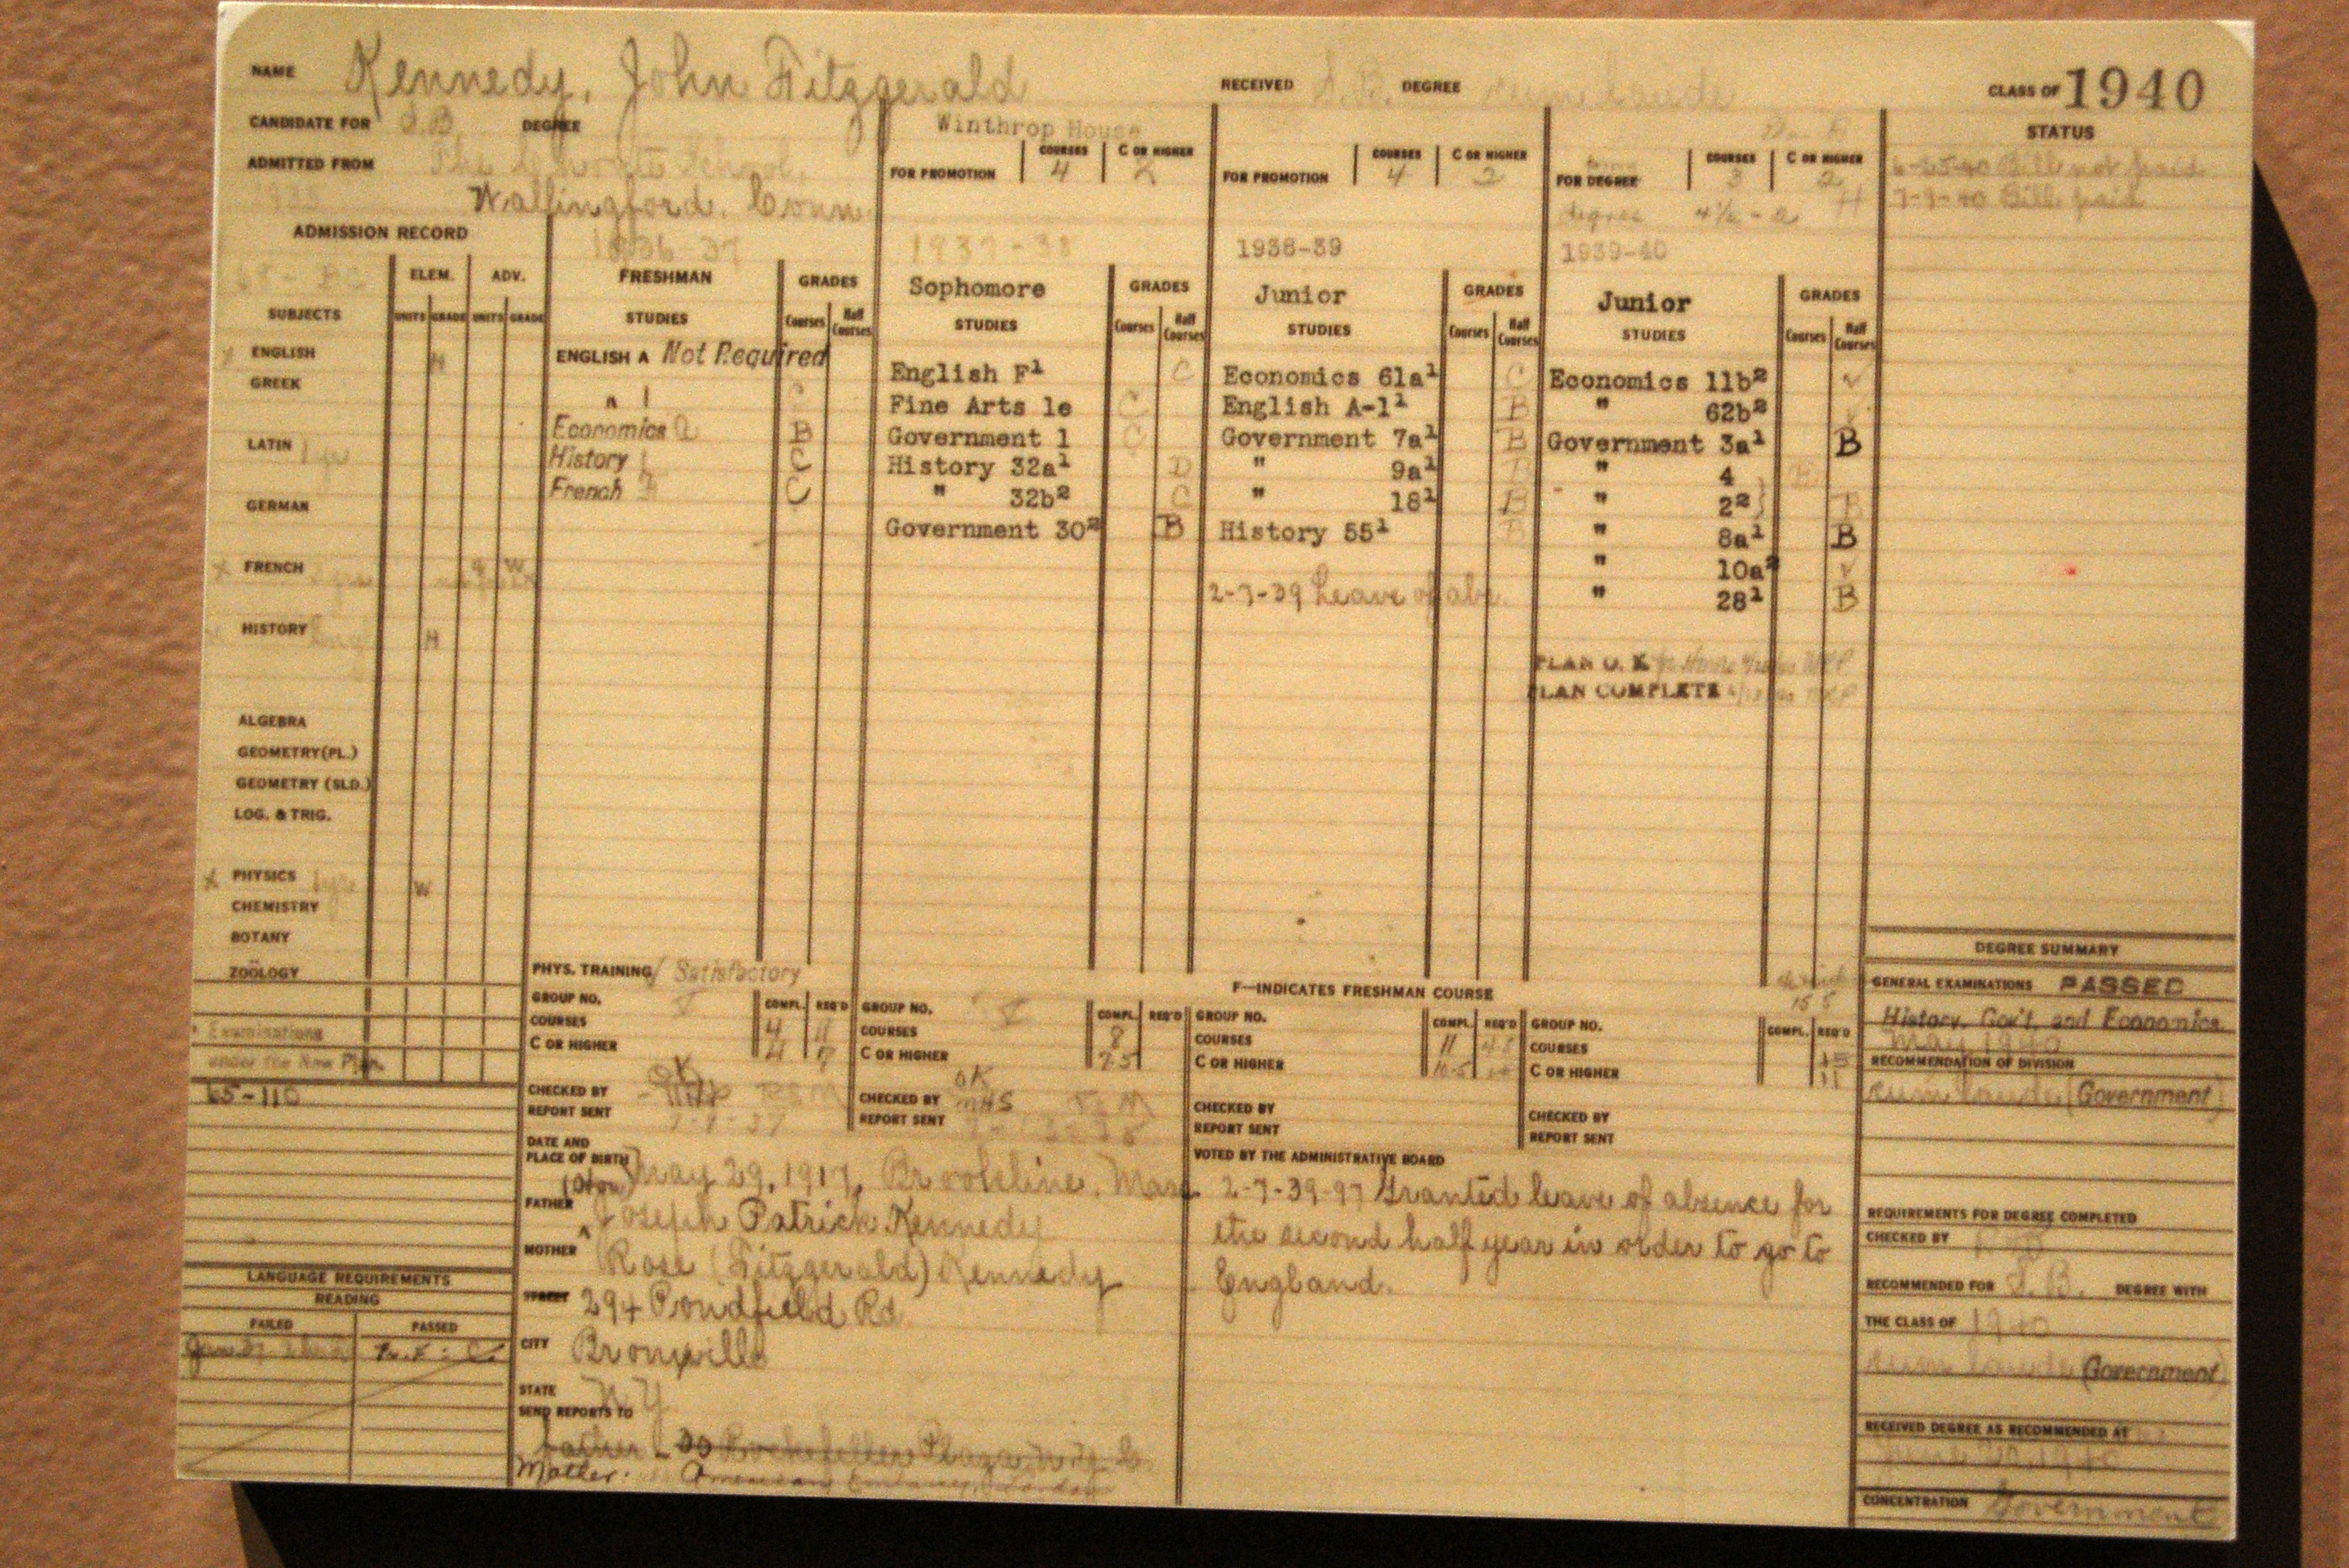 NAME Kennedy, John Fitzgerald RECEIVED S.B. DEGREE cum laude CLASS OF 1940
CANDIDATE FOR S.B. DEGREE Winthrop House STATUS
ADMITTED FROM The Choate School,
Wallingford, Conn
FOR PROMOTION COURSES 4 C OR HIGHER 2
FOR PROMOTION COURSES 4 C OR HIGHER 2
FOR DEGREE COURSES 3 C OR HIGHER 2
degree 4½ - 2
6-25-40 Bill not paid
7-9-40 Bill paid
ADMISSION RECORD
SUBJECTS ELEM. ADV.
UNITS GRADE UNITS GRADE
ENGLISH H
GREEK
LATIN
GERMAN
FRENCH
HISTORY H
ALGEBRA
GEOMETRY (PL.)
GEOMETRY (SLD.)
LOG. & TRIG.
PHYSICS W
CHEMISTRY
BOTANY
ZOÖLOGY
Examinations
under the New Plan
65-110
LANGUAGE REQUIREMENTS
READING
FAILED PASSED
1936-37
FRESHMAN GRADES
STUDIES Courses Half Courses
ENGLISH A Not Required
" 1 C
Economics A B
History 1 C
French C
1937-38
Sophomore GRADES
STUDIES Courses Half Courses
English F¹ C
Fine Arts 1e C
Government 1 C
History 32a¹ D
" 32b² C
Government 30² B
1938-39
Junior GRADES
STUDIES Courses Half Courses
Economics 61a¹ C
English A-1¹ B
Government 7a¹ B
" 9a¹ B
" 18¹ B
History 55¹ B
2-7-39 Leave of abs.
1939-40
Junior GRADES
STUDIES Courses Half Courses
Economics 11b² ✓
" 62b²
Government 3a¹ B
" 4 B
" 2² B
" 8a¹ B
" 10a² ✓
" 28¹ B
PLAN O. K.
PLAN COMPLETE
PHYS. TRAINING Satisfactory
F—INDICATES FRESHMAN COURSE
GROUP NO. COMPL. REQ'D
COURSES 4
C OR HIGHER 4
CHECKED BY OK
REPORT SENT 7-1-37
GROUP NO. COMPL. REQ'D
COURSES 8
C OR HIGHER 7.5
CHECKED BY OK
REPORT SENT
GROUP NO. COMPL. REQ'D
COURSES 11
C OR HIGHER 10.5
CHECKED BY
REPORT SENT
GROUP NO. COMPL. REQ'D
COURSES 15
C OR HIGHER 11
CHECKED BY
REPORT SENT
DATE AND
PLACE OF BIRTH May 29, 1917, Brookline, Mass.
FATHER (Hon) Joseph Patrick Kennedy
MOTHER Rose (Fitzgerald) Kennedy
STREET 294 Pondfield Rd
CITY Bronxville
STATE N.Y.
SEND REPORTS TO
Father - 30 Rockefeller Plaza, N.Y.C.
Mother: American Embassy, London
VOTED BY THE ADMINISTRATIVE BOARD
2-7-39-97 Granted leave of absence for
the second half year in order to go to
England.
DEGREE SUMMARY
GENERAL EXAMINATIONS PASSED
History, Gov't. and Economics
May 1940
RECOMMENDATION OF DIVISION
cum laude (Government)
REQUIREMENTS FOR DEGREE COMPLETED
CHECKED BY
RECOMMENDED FOR S.B. DEGREE WITH
THE CLASS OF 1940
cum laude (Government)
RECEIVED DEGREE AS RECOMMENDED AT
June 20, 1940
CONCENTRATION Government